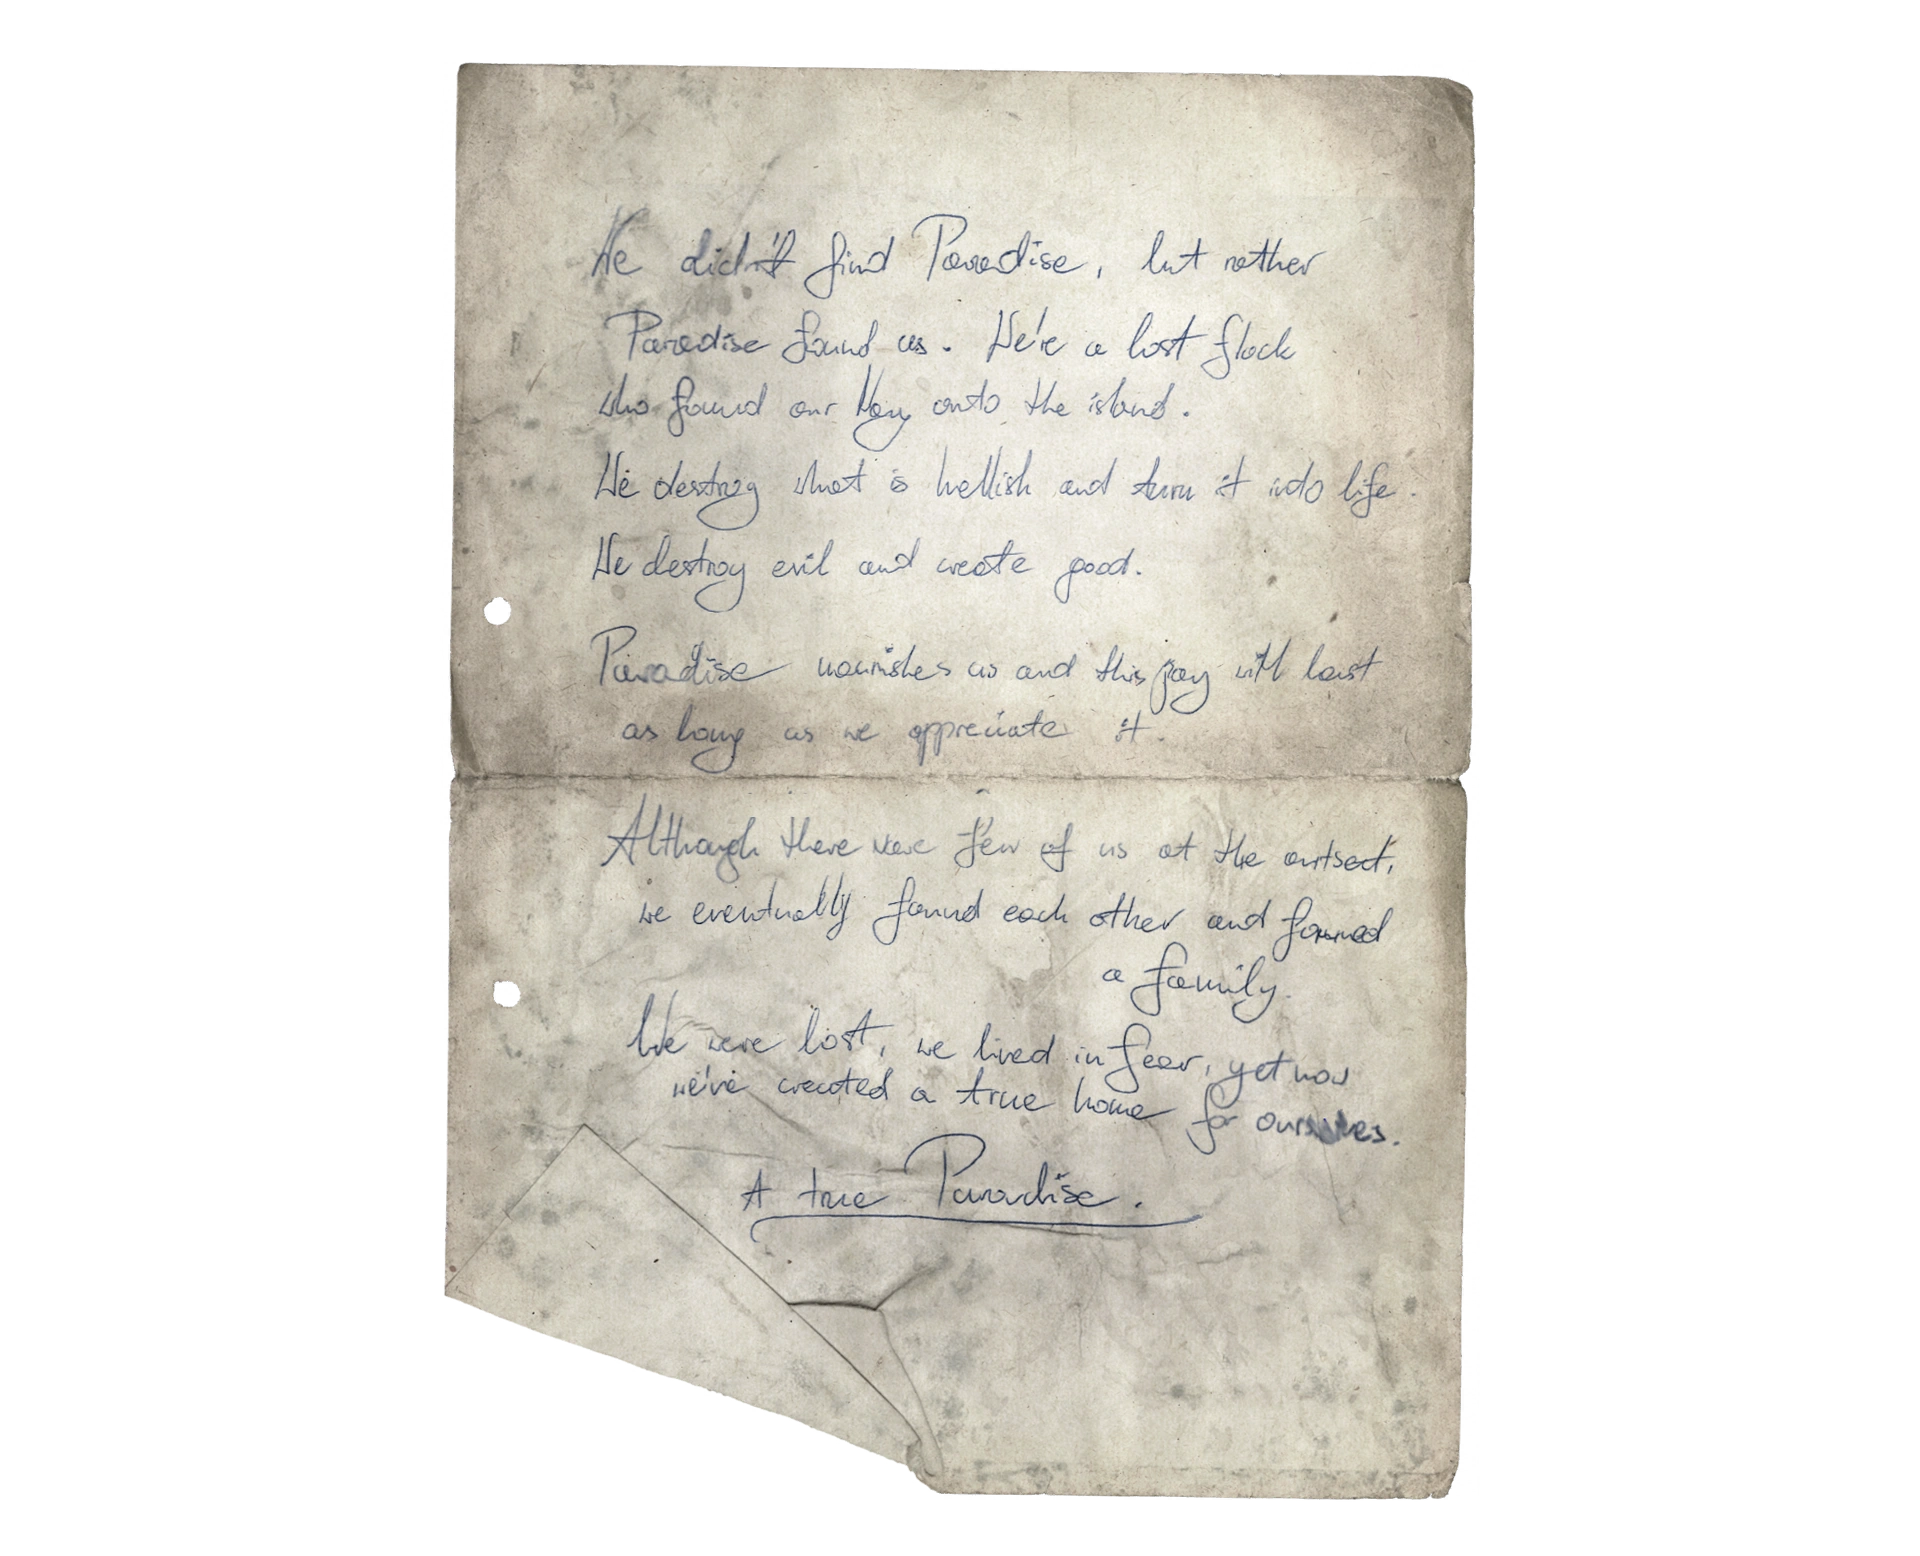 We didn't find Paradise, but rather
Paradise found us. We're a lost flock
who found our way onto the island.
We destroy what is hellish and turn it into life.
We destroy evil and create good.
Paradise nourishes us and this joy will last
as long as we appreciate it.
Although there were few of us at the outset,
we eventually found each other and formed
a family.
We were lost, we lived in fear, yet now
we've created a true home for ourselves.
A true Paradise.